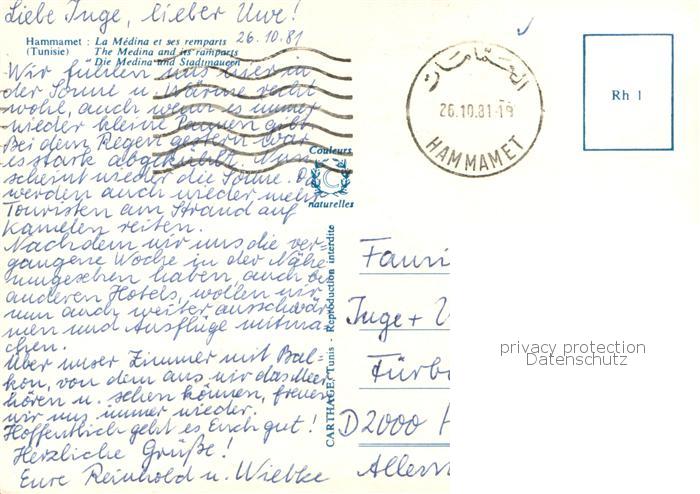 Liebe Inge, lieber Uwe!
26.10.81
Hammamet : La Médina et ses remparts
(Tunisie) The Medina and its ramparts
Die Medina und Stadtmauern
Wir fühlen uns hier in
der Sonne u. Wärme recht
wohl, auch wenn es immer
wieder kleine Pausen gibt.
Bei dem Regen gestern war
es stark abgekühlt. Nun
scheint wieder die Sonne. Da
werden auch wieder mehr
Touristen am Strand auf
Kamelen reiten.
Nachdem wir uns die ver-
gangene Woche in der Nähe
umgesehen haben, auch bei
anderen Hotels, wollen wir
nun auch weiter ausschwär-
men und Ausflüge mitma-
chen.
Über unser Zimmer mit Bal-
kon, von dem aus wir das Meer
hören u. sehen können, freuen
wir uns immer wieder.
Hoffentlich geht es Euch gut!
Herzliche Grüße!
Eure Reinhold u. Wiebke
Couleurs
naturelles
CARTHAGE, Tunis - Reproduction interdite
الحمّامات
26.10.81-19
HAMMAMET
Rh 1
Fami
Inge + U
Fürb
D2000 H
Allem
privacy protection
Datenschutz